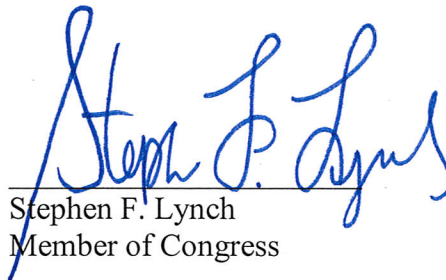 Stephen F. Lynch
Stephen F. Lynch
Member of Congress